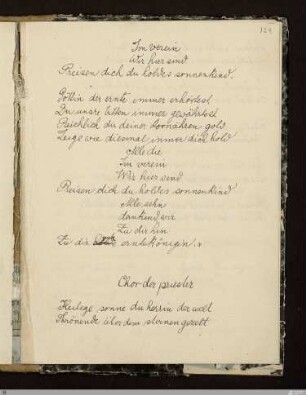 129
Im verein
Wir hier sind
Preisen dich du holdes sonnenkind.
Göttin der ernte immer erhörtest
Du unsre bitten immer gewährtest
Reichlich du deine kornähren gold
Zeige wie diesmal immer dich hold
Alle die
Im verein
Wir hier sind
Preisen dich du holdes sonnenkind
Alle sehn
dankend wir
Zu dir hin
Zu dir erntekönigin.
Chor der priester
Heilige sonne du herrin der welt
Thronende über dem sternengezelt